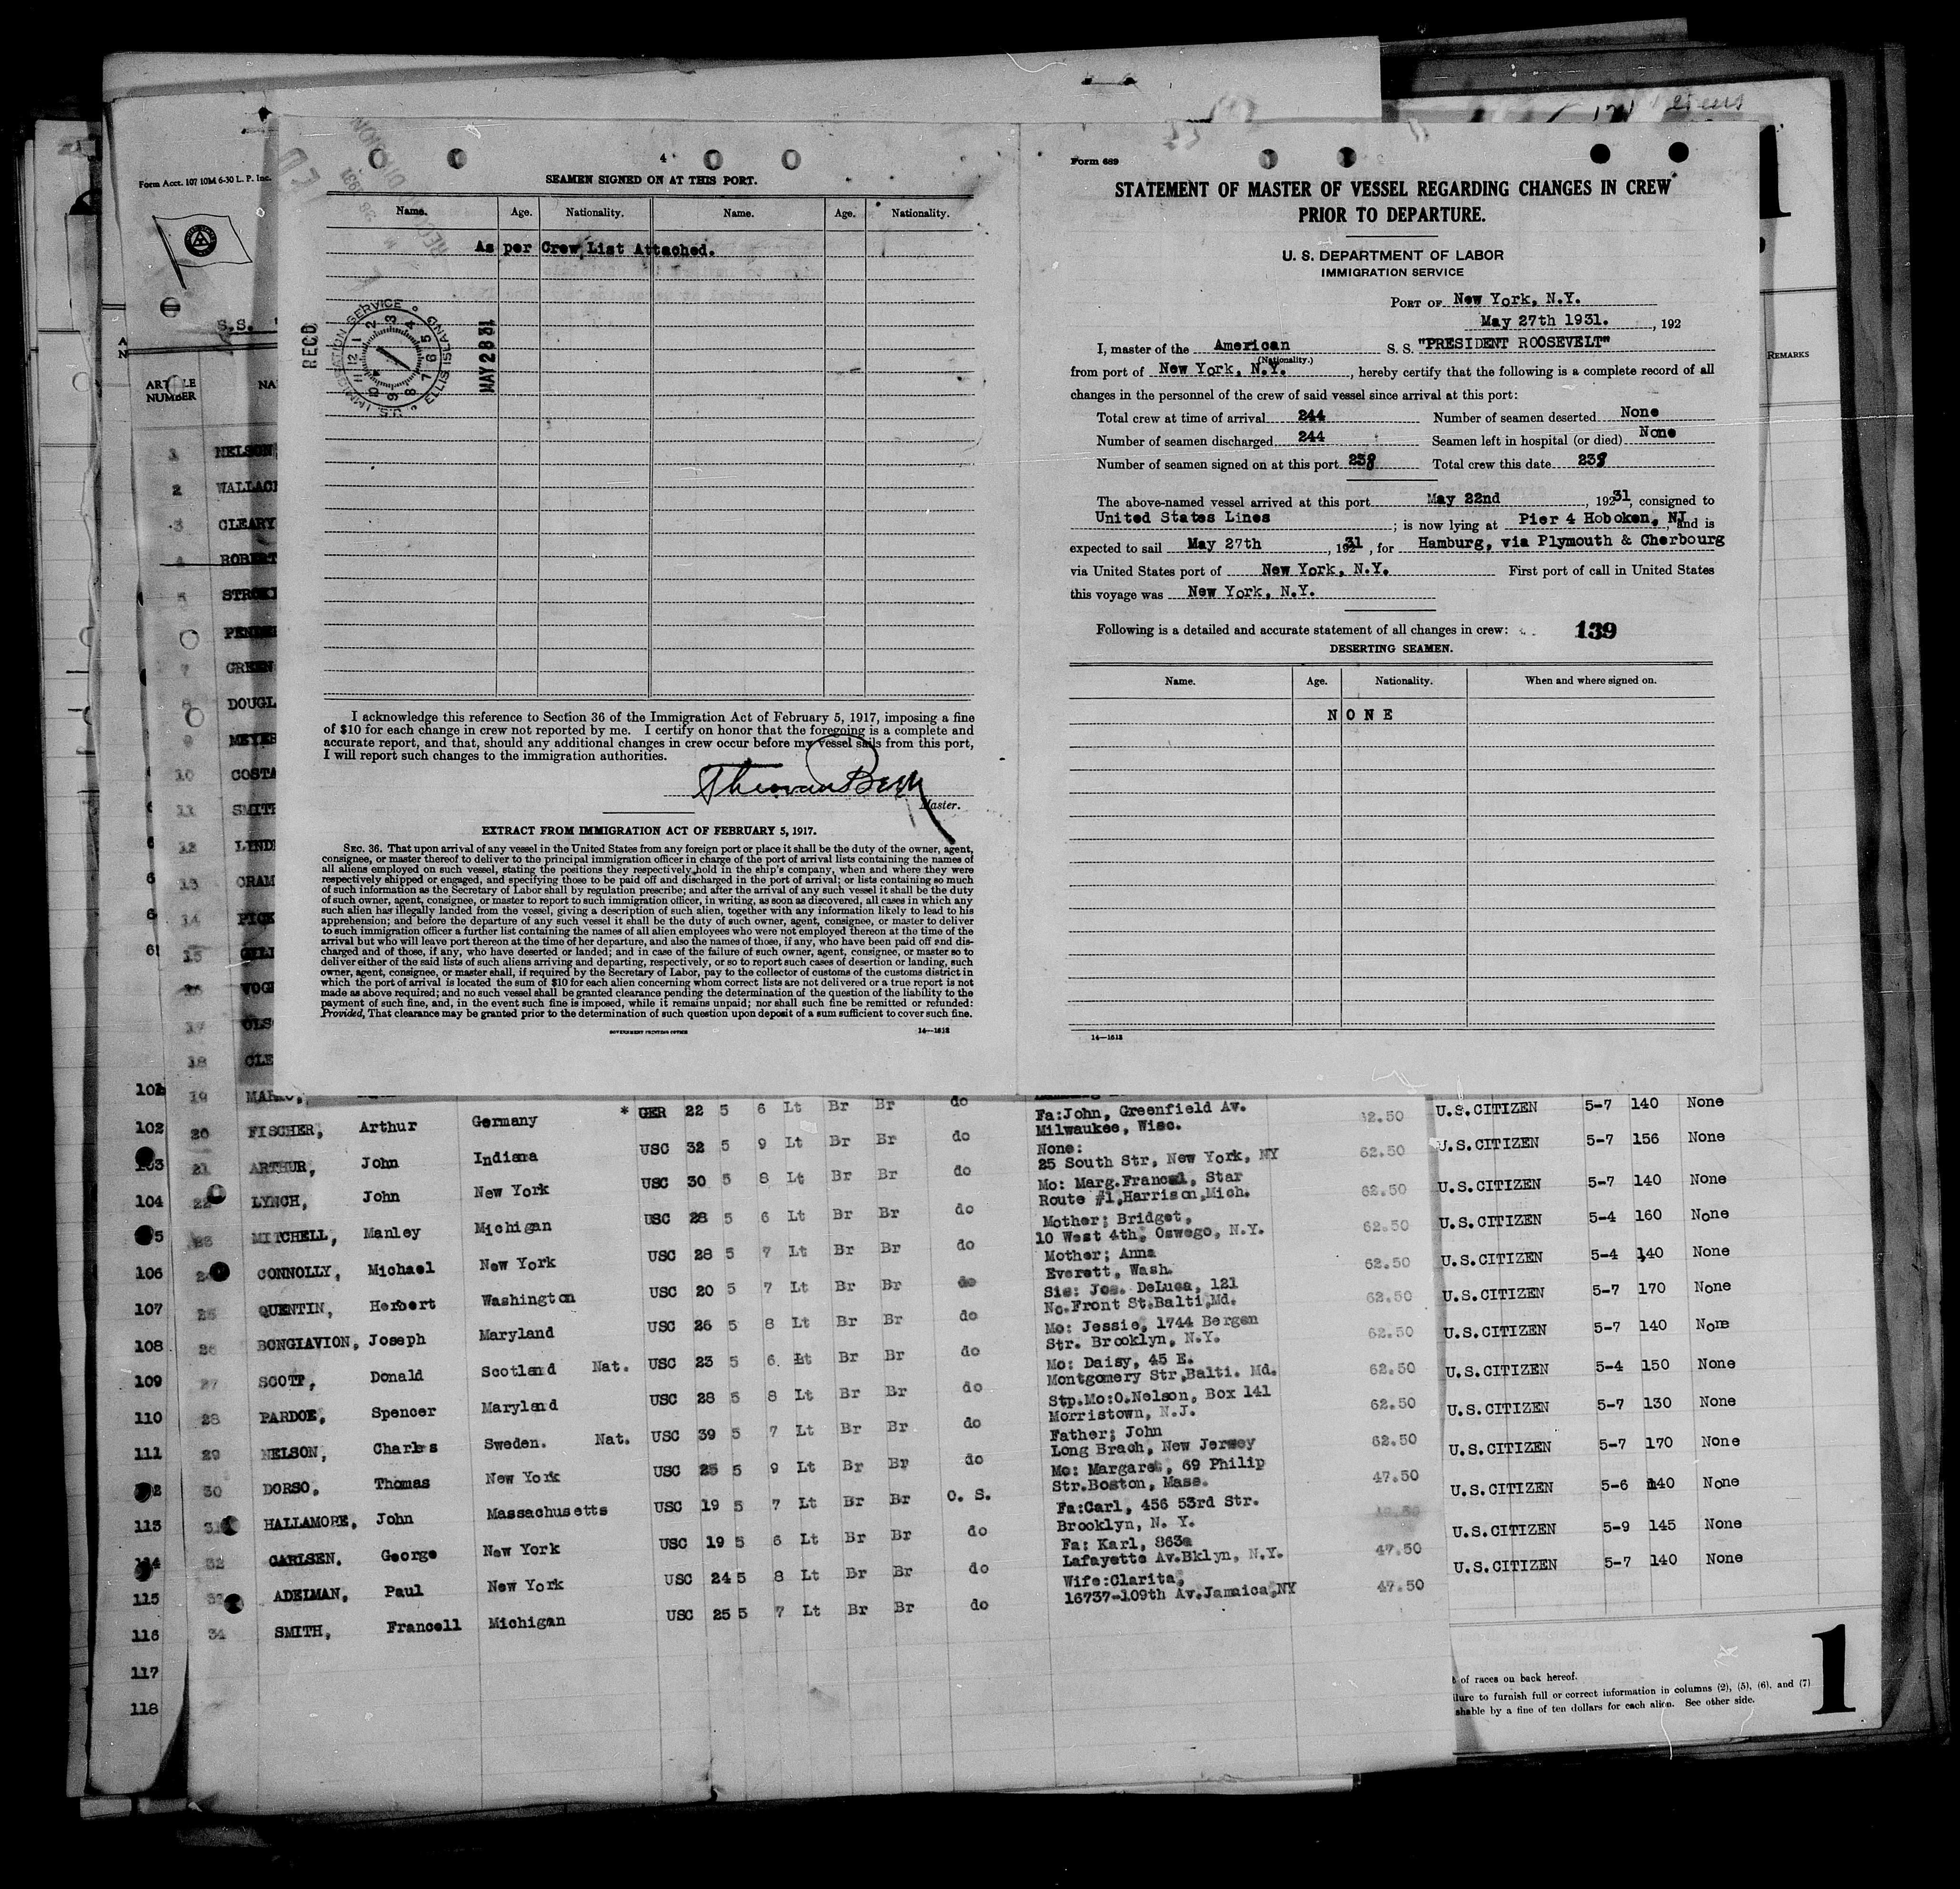 Form Acct. 107 10M 6-30 L. P. Inc.
S.S.
ARTICLE NUMBER
4
SEAMEN SIGNED ON AT THIS PORT.
Name. Age. Nationality. Name. Age. Nationality.
As per Crew List Attached.
REC'D
U.S. IMMIGRATION SERVICE ELLIS ISLAND
MAY 28 31
I acknowledge this reference to Section 36 of the Immigration Act of February 5, 1917, imposing a fine
of $10 for each change in crew not reported by me. I certify on honor that the foregoing is a complete and
accurate report, and that, should any additional changes in crew occur before my vessel sails from this port,
I will report such changes to the immigration authorities.
Master.
EXTRACT FROM IMMIGRATION ACT OF FEBRUARY 5, 1917.
SEC. 36. That upon arrival of any vessel in the United States from any foreign port or place it shall be the duty of the owner, agent,
consignee, or master thereof to deliver to the principal immigration officer in charge of the port of arrival lists containing the names of
all aliens employed on such vessel, stating the positions they respectively hold in the ship's company, when and where they were
respectively shipped or engaged, and specifying those to be paid off and discharged in the port of arrival; or lists containing so much
of such information as the Secretary of Labor shall by regulation prescribe; and after the arrival of any such vessel it shall be the duty
of such owner, agent, consignee, or master to report to such immigration officer, in writing, as soon as discovered, all cases in which any
such alien has illegally landed from the vessel, giving a description of such alien, together with any information likely to lead to his
apprehension; and before the departure of any such vessel it shall be the duty of such owner, agent, consignee, or master to deliver
to such immigration officer a further list containing the names of all alien employees who were not employed thereon at the time of the
arrival but who will leave port thereon at the time of her departure, and also the names of those, if any, who have been paid off and dis-
charged and of those, if any, who have deserted or landed; and in case of the failure of such owner, agent, consignee, or master so to
deliver either of the said lists of such aliens arriving and departing, respectively, or so to report such cases of desertion or landing, such
owner, agent, consignee, or master shall, if required by the Secretary of Labor, pay to the collector of customs of the customs district in
which the port of arrival is located the sum of $10 for each alien concerning whom correct lists are not delivered or a true report is not
made as above required; and no such vessel shall be granted clearance pending the determination of the question of the liability to the
payment of such fine, and, in the event such fine is imposed, while it remains unpaid; nor shall such fine be remitted or refunded:
Provided, That clearance may be granted prior to the determination of such question upon deposit of a sum sufficient to cover such fine.
GOVERNMENT PRINTING OFFICE 14—1612
Form 689
STATEMENT OF MASTER OF VESSEL REGARDING CHANGES IN CREW
PRIOR TO DEPARTURE.
U. S. DEPARTMENT OF LABOR
IMMIGRATION SERVICE
PORT OF New York, N.Y.
May 27th 1931. , 192
I, master of the American S. S. "PRESIDENT ROOSEVELT"
(Nationality.)
from port of New York, N.Y. , hereby certify that the following is a complete record of all
changes in the personnel of the crew of said vessel since arrival at this port:
Total crew at time of arrival 244 Number of seamen deserted None
Number of seamen discharged 244 Seamen left in hospital (or died) None
Number of seamen signed on at this port 238 Total crew this date 238
The above-named vessel arrived at this port May 22nd , 19231, consigned to
United States Lines ; is now lying at Pier 4 Hoboken, NJ and is
expected to sail May 27th , 19231 , for Hamburg, via Plymouth & Cherbourg
via United States port of New York, N.Y. First port of call in United States
this voyage was New York, N.Y.
Following is a detailed and accurate statement of all changes in crew: 139
DESERTING SEAMEN.
Name. Age. Nationality. When and where signed on.
NONE
14—1612
REMARKS
1 NELSON
2 WALLACE
3 CLEARY
4 ROBERT
5 STROK
PENDE
7 GREEN
8 DOUGL
9 MEYER
10 COSTA
11 SMITH
12 LYND
13 CRAM
14 PICK
15
VOG
17 OLS
18 CLE
101 19 MAR
102 20 FISCHER, Arthur Germany * GER 22 5 6 Lt Br Br do
Fa:John, Greenfield Av. Milwaukee, Wisc. 62.50 U.S.CITIZEN 5-7 140 None
103 21 ARTHUR, John Indiana USC 32 5 9 Lt Br Br do
None: 25 South Str, New York, NY 62.50 U.S.CITIZEN 5-7 156 None
104 22 LYNCH, John New York USC 30 5 8 Lt Br Br do
Mo: Marg.Francel, Star Route #1,Harrison,Mich. 62.50 U.S.CITIZEN 5-7 140 None
105 23 MITCHELL, Manley Michigan USC 28 5 6 Lt Br Br do
Mother; Bridget, 10 West 4th, Oswego, N.Y. 62.50 U.S.CITIZEN 5-4 160 None
106 24 CONNOLLY, Michael New York USC 28 5 7 Lt Br Br do
Mother; Anna Everett, Wash. 62.50 U.S.CITIZEN 5-4 140 None
107 25 QUENTIN, Herbert Washington USC 20 5 7 Lt Br Br do
Sis: Jos. DeLuca, 121 No.Front St.Balti,Md. 62.50 U.S.CITIZEN 5-7 170 None
108 26 BONGIAVION, Joseph Maryland USC 26 5 8 Lt Br Br do
Mo: Jessie, 1744 Bergen Str. Brooklyn, N.Y. 62.50 U.S.CITIZEN 5-7 140 None
109 27 SCOTT, Donald Scotland Nat. USC 23 5 6 Lt Br Br do
Mo: Daisy, 45 E. Montgomery Str,Balti. Md. 62.50 U.S.CITIZEN 5-4 150 None
110 28 PARDOE, Spencer Maryland USC 28 5 8 Lt Br Br do
Stp.Mo:O.Nelson, Box 141 Morristown, N.J. 62.50 U.S.CITIZEN 5-7 130 None
111 29 NELSON, Charles Sweden. Nat. USC 39 5 7 Lt Br Br do
Father; John Long Brach, New Jersey 62.50 U.S.CITIZEN 5-7 170 None
112 30 DORSO, Thomas New York USC 25 5 9 Lt Br Br do
Mo: Margaret, 69 Philip Str.Boston, Mass. 47.50 U.S.CITIZEN 5-6 140 None
113 31 HALLAMORE, John Massachusetts USC 19 5 7 Lt Br Br O. S.
Fa:Carl, 456 53rd Str. Brooklyn, N. Y. U.S.CITIZEN 5-9 145 None
114 32 CARLSEN. George New York USC 19 5 6 Lt Br Br do
Fa: Karl, 863a Lafayette Av.Bklyn, N.Y. 47.50 U.S.CITIZEN 5-7 140 None
115 ADELMAN, Paul New York USC 24 5 8 Lt Br Br do
Wife:Clarita, 16737-109th Av.Jamaica,NY 47.50
116 34 SMITH, Francell Michigan USC 25 5 7 Lt Br Br do
117
118
of races on back hereof.
lure to furnish full or correct information in columns (2), (5), (6), and (7)
shable by a fine of ten dollars for each alien. See other side.
1